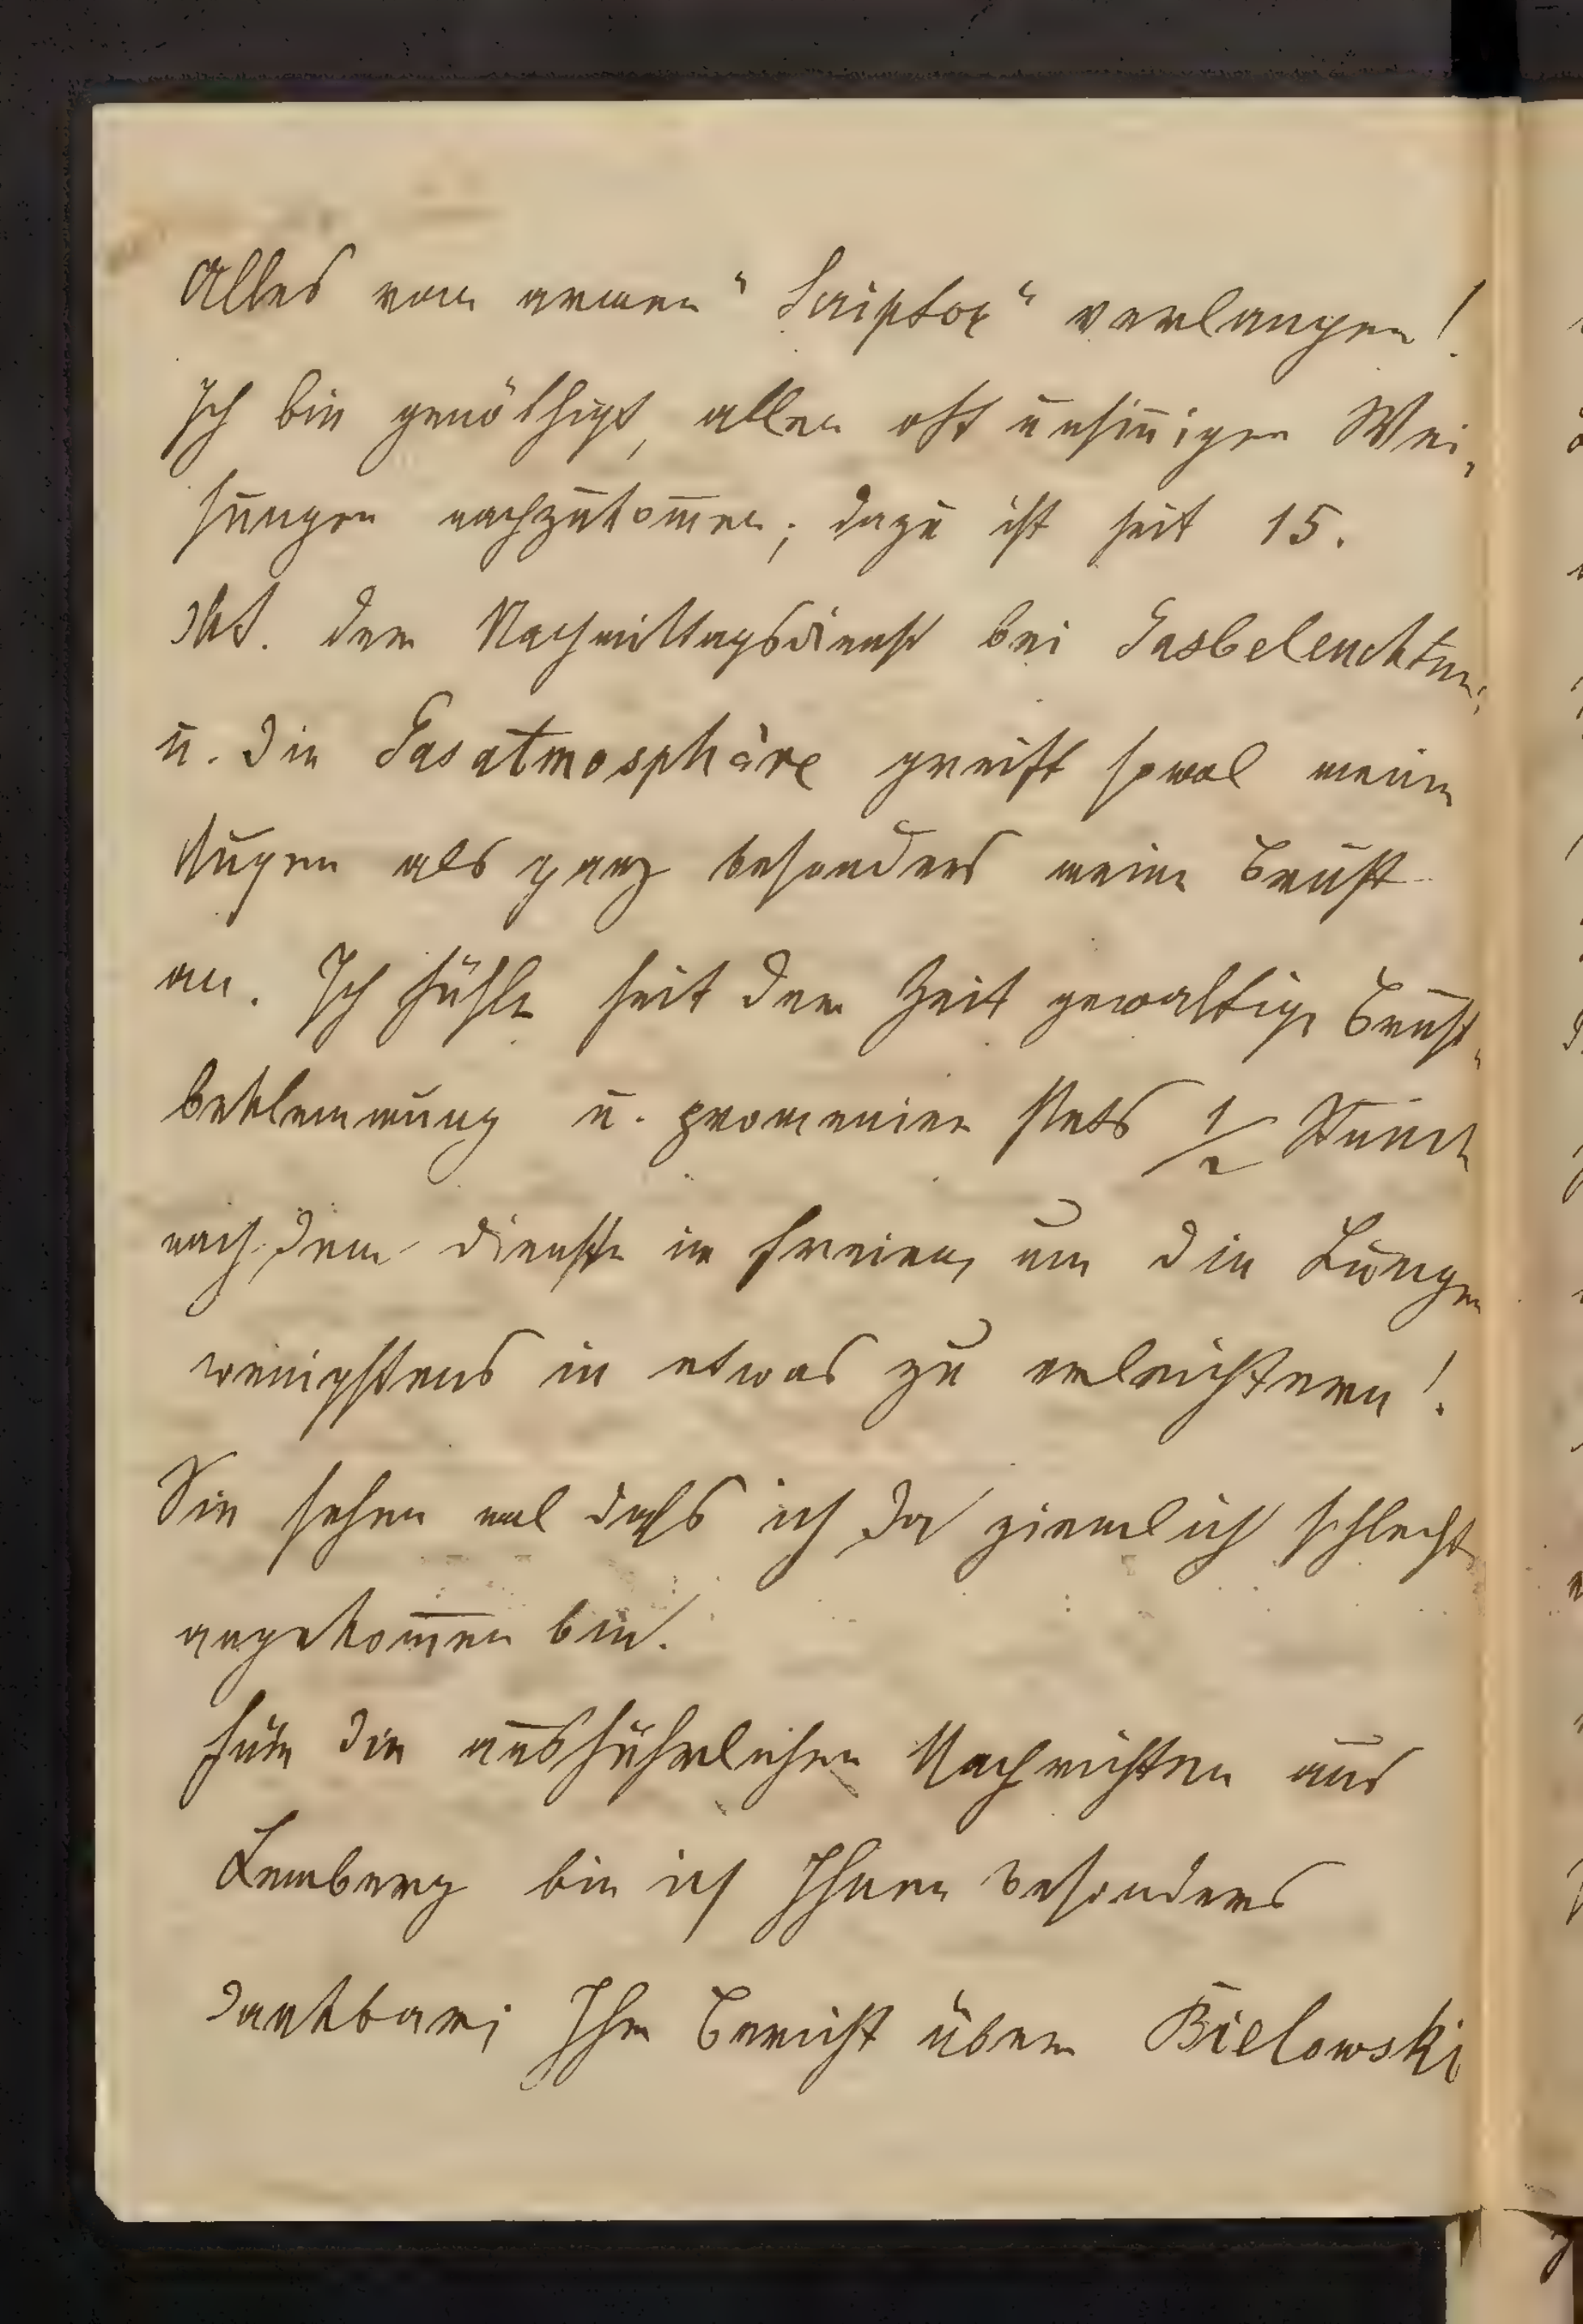 Alles vom armen "Scriptor" verlangen!
Ich bin genöthigt, allen oft unsiñigen Wei„
sungen nachzukom̃en; dazu ist seit 15.
Okt. der Nachmittagsdienst bei Gasbeleuchtung
u. die Gasatmosphäre greift sowol meine
Augen als ganz besonders meine Brust
an. Ich fühle seit der Zeit gewaltige Brust„
beklemmung u. promenire stets 1/2 Stunde
nach dem Dienste im Freien, um die Lungen
wenigstens in etwas zu erleichtern!
Sie sehen wol daß ich da ziemlich schlecht
angekom̃en bin.
Für die ausführlichen Nachrichten aus
Lemberg bin ich Ihnen besonders
dankbar; Ihr Bericht über Bielowski